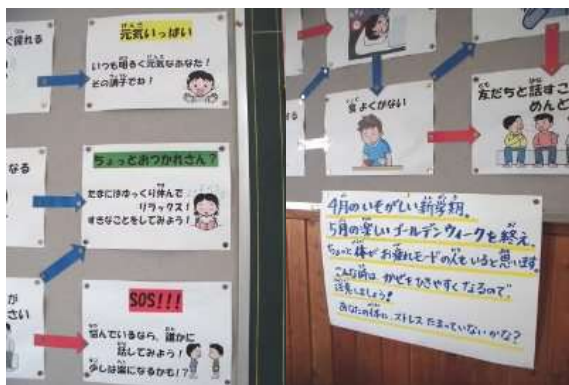 く疲れる
元気いっぱい
いつも明るく元気なあなた！
その調子でね！
なる
ちょっとおつかれさん？
たまにはゆっくり休んで
リラックス！
すきなことをしてみよう！
が
さい
SOS!!!
悩んでいるなら、誰かに
話してみよう！
少しは楽になるかも！？
食よくがない
友だちと話すこ
めんど
る
4月のいそがしい新学期。
5月の楽しいゴールデンウィークを終え、
ちょっと体がお疲れモードの人もいると思います。
こんな時は かぜをひきやすくなるので、
注意しましょう！
あなたの体に、ストレス たまっていないかな？